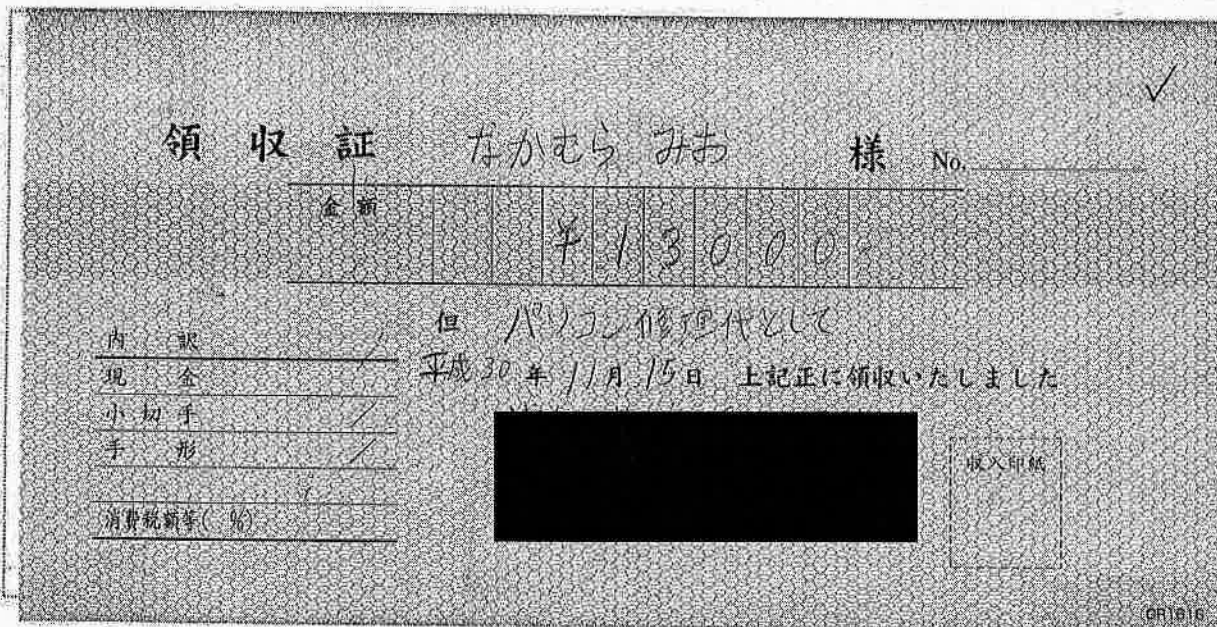 領収証 なかむら みお 様 No.
金額 ¥13000
但 パソコン修理代として
平成30年11月15日 上記正に領収いたしました
内訳
現金
小切手
手形
消費税額等( %)
収入印紙
GR1616